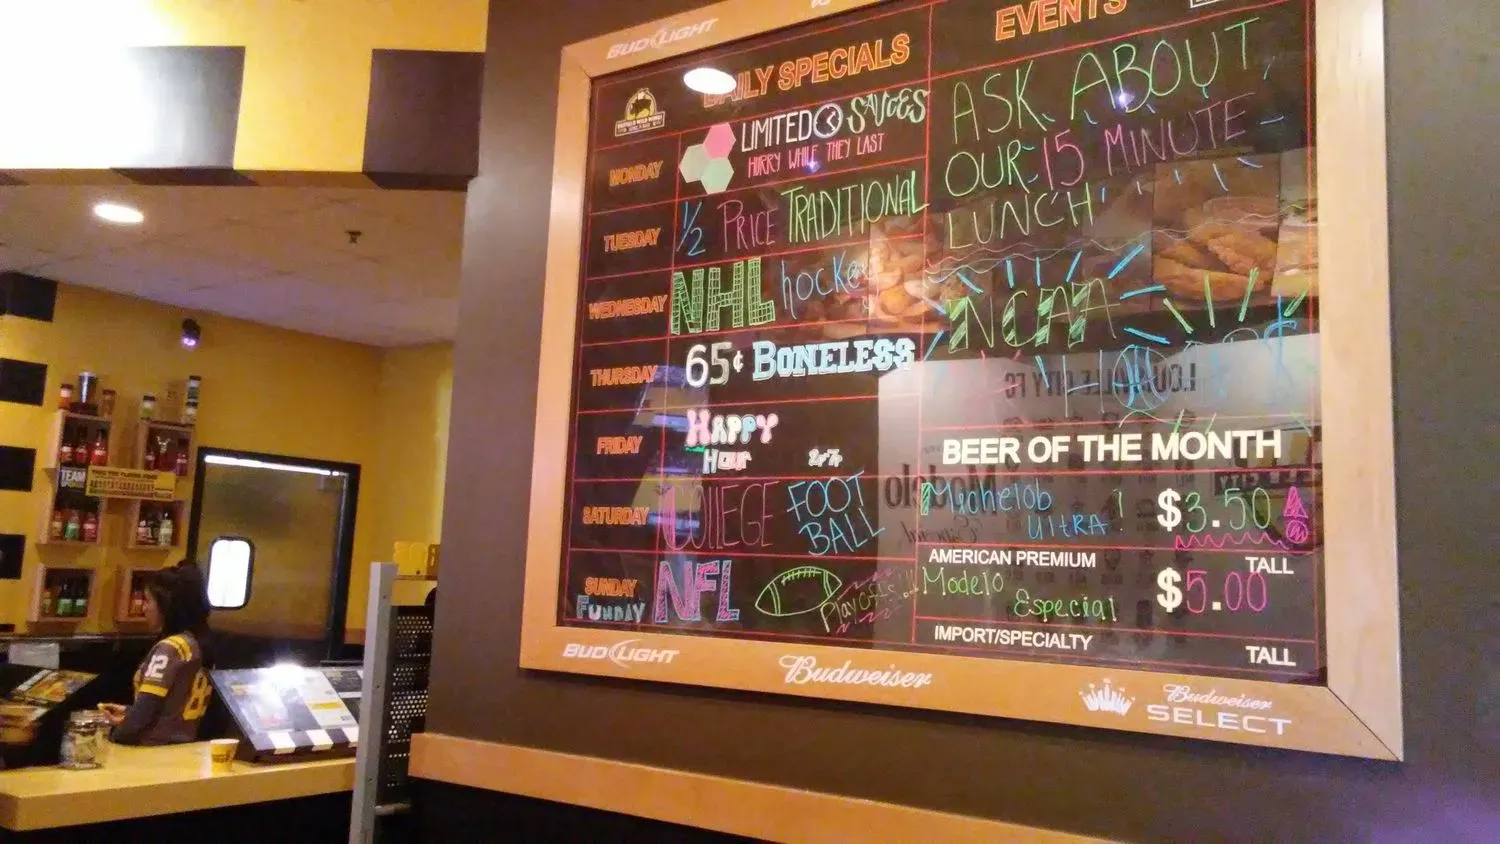 BUD LIGHT
DAILY SPECIALS
BUFFALO WILD WINGS
MONDAY
LIMITED SAUCES
HURRY WHILE THEY LAST
TUESDAY
1/2 PRICE TRADITIONAL
WEDNESDAY
NHL hockey
THURSDAY
65¢ BONELESS
FRIDAY
HAPPY
HOUR
SATURDAY
COLLEGE FOOT
BALL
SUNDAY
FUNDAY
NFL
PLAYOFFS
EVENTS
ASK ABOUT
OUR 15 MINUTE
LUNCH
NCAA
LOUISVILLE CITY FC
BEER OF THE MONTH
Michelob
ULTRA!
$3.50
AMERICAN PREMIUM
TALL
Modelo
Especial
$5.00
IMPORT/SPECIALTY
TALL
BUD LIGHT
Budweiser
Budweiser
SELECT
TEAM